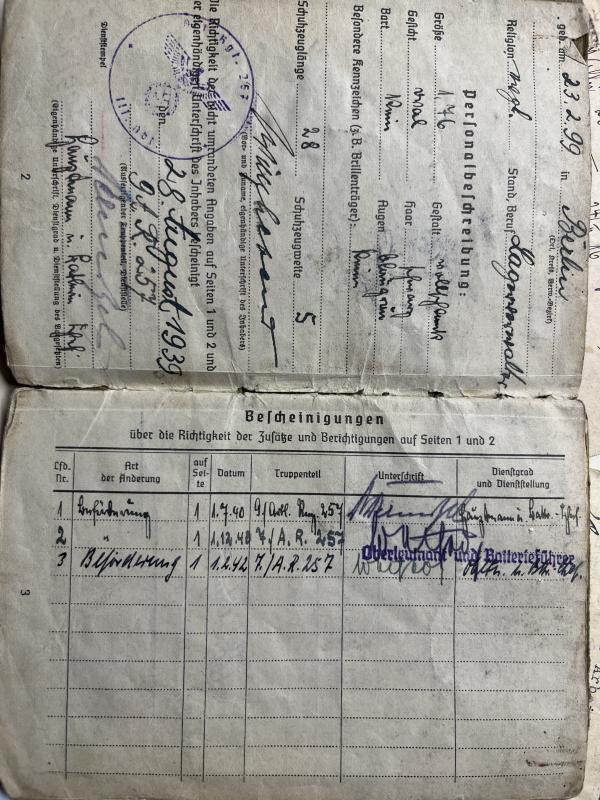 geb. am 23.2.99 in
(Ort, Kreis, Verw.-Bezirk)
Religion evgl. Stand, Beruf Lagerverwalter
Personalbeschreibung:
Größe 1,76 Gestalt
Gesicht oval Haar schwarz
Bart kein Augen blaugrau
Besondere Kennzeichen (z.B. Brillenträger):
keine
Schuhzeuglänge 28 Schuhzeugweite 5
(Vor- und Zuname, eigenhändige Unterschrift des Inhabers)
Die Richtigkeit der nicht umrandeten Angaben auf Seiten 1 und 2 und
der eigenhändigen Unterschrift des Inhabers bescheinigt
den 28. August 1939
(Ausfertigender Truppenteil, Dienststelle)
Dienststempel
(Eigenhändige Unterschrift, Dienstgrad u. Dienststellung des Vorgesetzten)
2
Bescheinigungen
über die Richtigkeit der Zusätze und Berichtigungen auf Seiten 1 und 2
Lfd. Nr. Art der Änderung auf Seite Datum Truppenteil Unterschrift Dienstgrad und Dienststellung
1 Beförderung 1 1.7.40 9/Artl. Reg. 257
2 " 1 1.12.40 7./A.R. 257 Oberleutnant und Batterieführer
3 Beförderung 1 1.2.42 7./A.R. 257
3